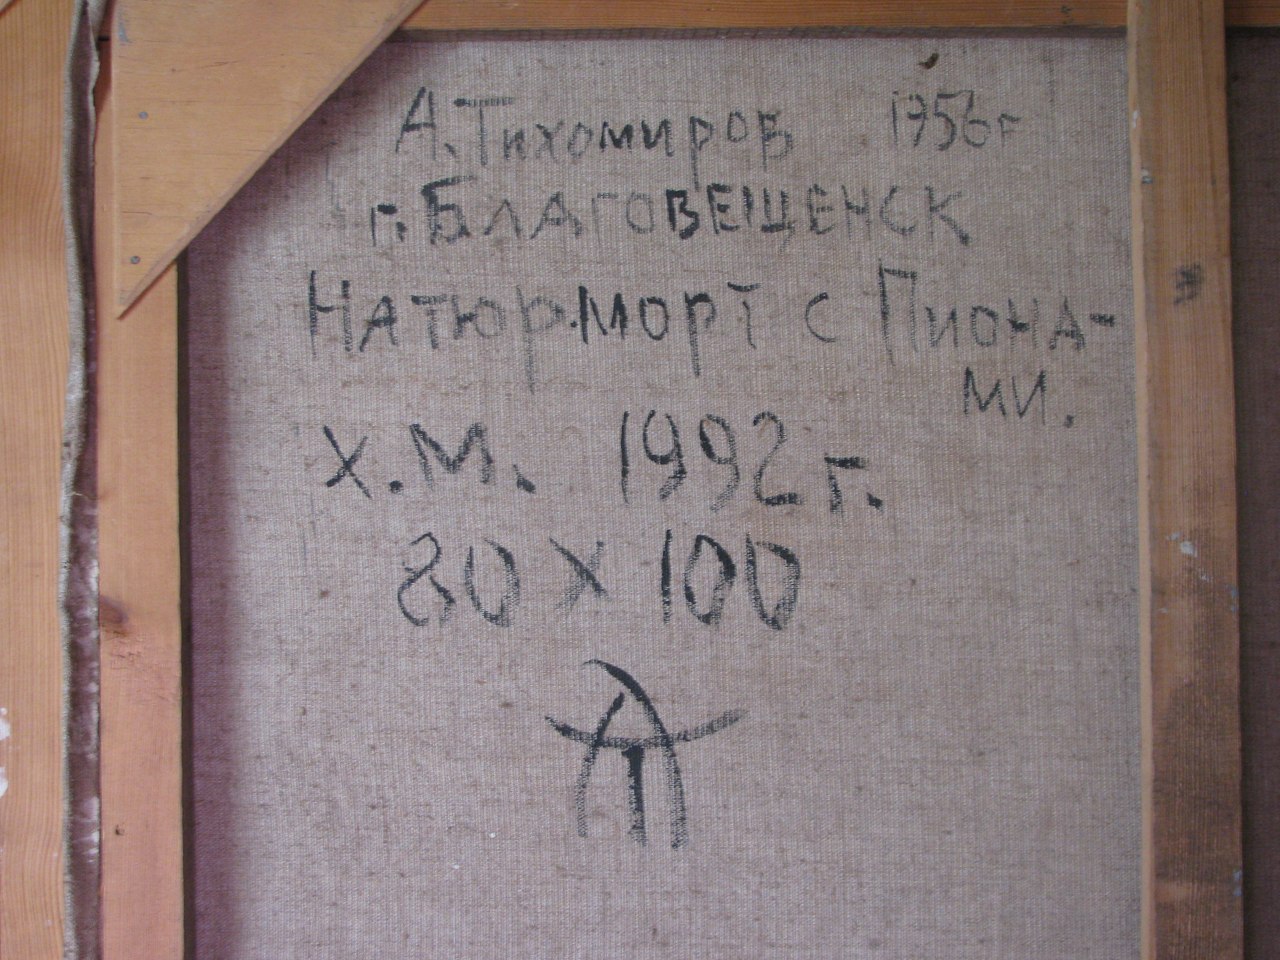 А. Тихомиров 1956 г
г. Благовещенск
Натюрморт с Пиона-
ми.
Х.М. 1992 г.
80 х 100